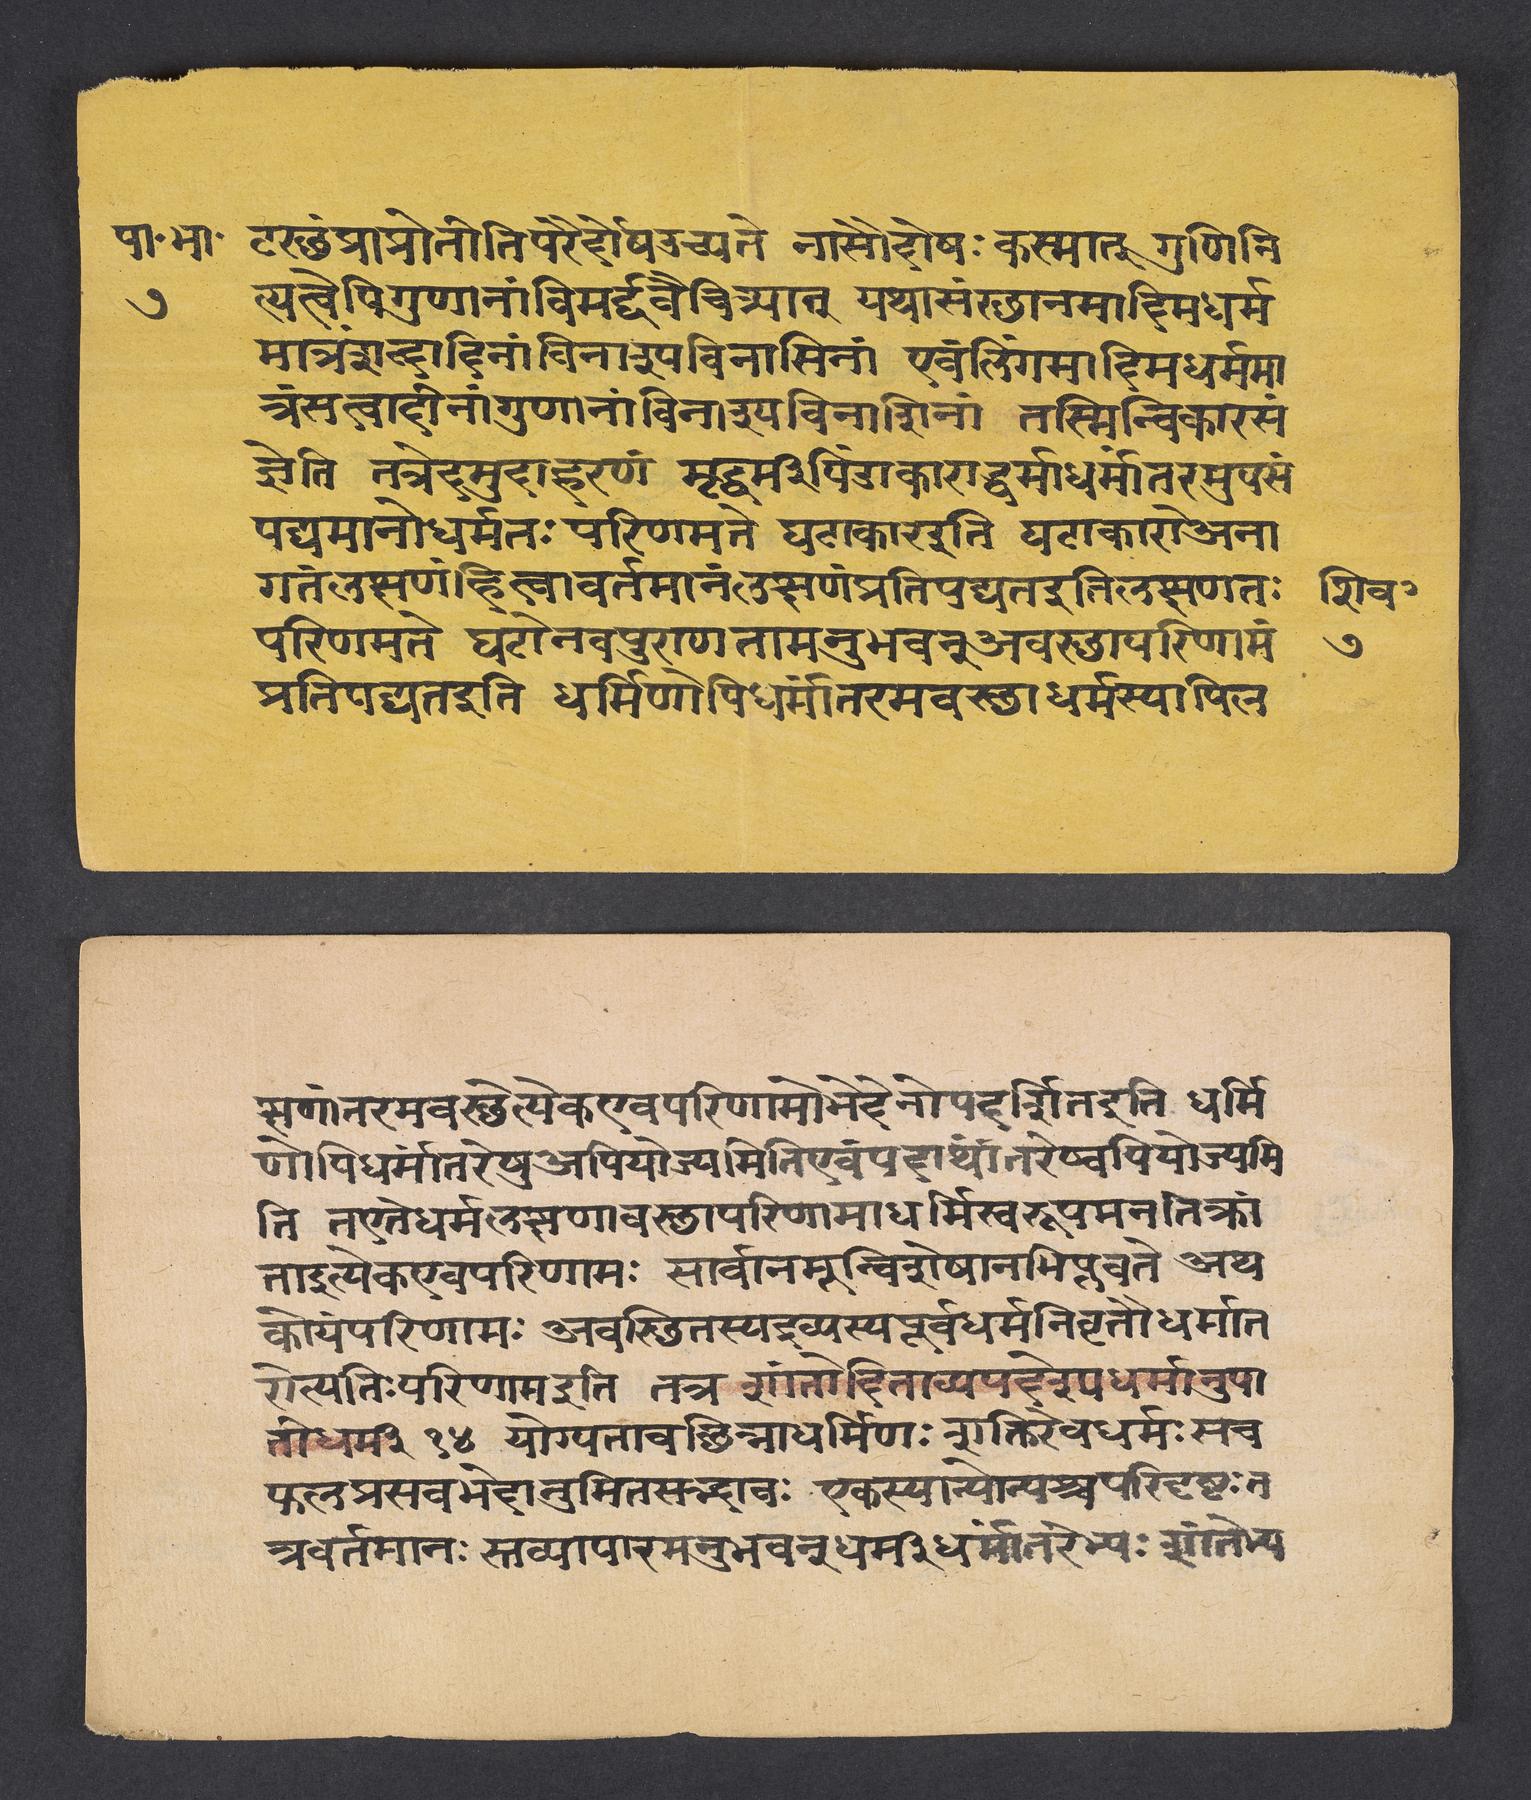 पा॰भा॰ टस्थंप्राप्रोतीतिपरैर्दोषउच्यते नासौदोषः कस्मात् गुणिनि
७ त्यत्वेपिगुणानांविमर्द्दवैचित्र्यात् यथासंस्थानमादिमधर्म
मात्रंशब्दादिनांविनाशपविनासिनां एवंलिंगमादिमधर्ममा
त्रंसत्त्वादीनांगुणानांविनाउपविनाशिनां तस्मिन्विकारसं
ज्ञेति तत्रेदमुदाहरणं मृद्धर्मीपिंडाकाराद्धर्माधर्मांतरमुपसं
पद्यमानोधर्मतः परिणमते घटाकारइति घटाकारोअना
गतंलक्षणंहित्वावर्तमानंलक्षणंप्रतिपद्यतइतिलक्षणतः शिव॰
परिणमते घटोनवपुराणतामनुभवन्अवस्थापरिणामं ७
प्रतिपद्यतइति धर्मिणोपिधर्मांतरमवस्थाधर्मस्यापिल
क्षणांतरमवस्थेत्येकएवपरिणामोभेदेनोपदर्शितइति धर्मि
णोपिधर्मांतरेषुअपियोज्यमितिएवंपदार्थांतरेष्वपियोज्यमि
ति तएतेधर्मलक्षणावस्थापरिणामाधर्मिस्वरूपमनतिक्रां
ताइत्येकएवपरिणामः सार्वानमून्विशेषानभिप्लवते अथ
कोयंपरिणामः अवस्थितस्यद्रव्यस्यपूर्वधर्मनिवृतौधर्मात
रोत्पतिःपरिणामइति तत्र शांतोदिताव्यपदेश्यधर्मानुपा
तीधर्मी १४ योग्यतावछिन्नाधर्मिणः शक्तिरेवधर्मः सच
फलप्रसवभेदानुमितसद्भावः एकस्यान्योन्यश्चपरिदृष्टःत
त्रवर्तमानः स्वव्यापारमनुभवन्धर्मीधर्मांतरेभ्यः शांतेभ्य